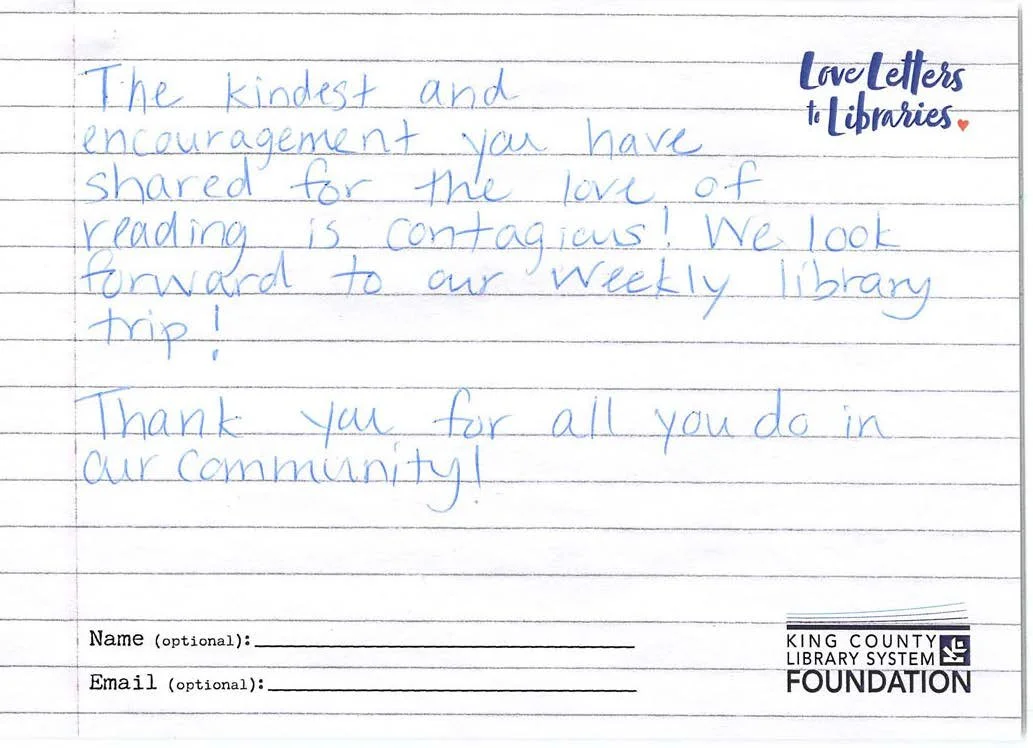 Love Letters
to Libraries.
The kindest and
encouragement you have
shared for the love of
reading is contagious! We look
forward to our weekly library
trip!
Thank you for all you do in
our community!
Name (optional):
Email (optional):
KING COUNTY
LIBRARY SYSTEM
FOUNDATION